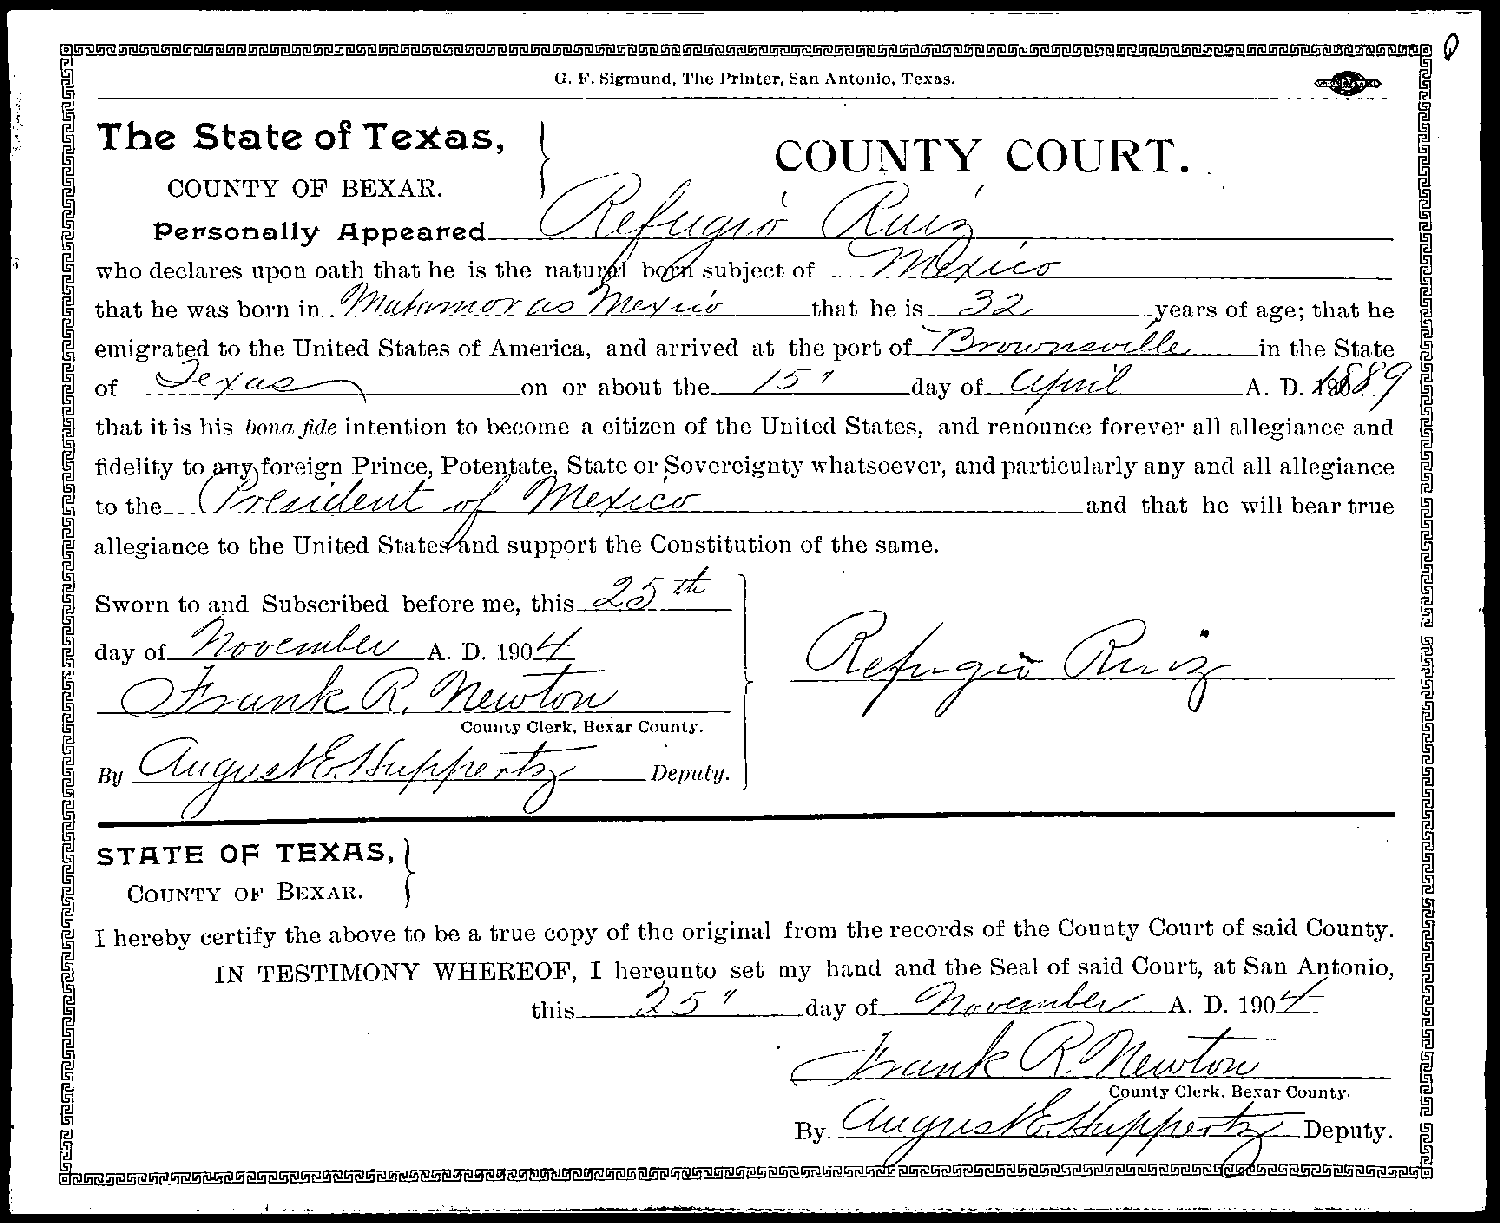 G. F. Sigmund, The Printer, San Antonio, Texas.
The State of Texas,
COUNTY OF BEXAR.
COUNTY COURT.
Personally Appeared Refugio Ruiz
who declares upon oath that he is the natural born subject of Mexico
that he was born in Matamoras Mexico that he is 32 years of age; that he
emigrated to the United States of America, and arrived at the port of Brownsville in the State
of Texas on or about the 15" day of April A. D. 1889
that it is his bona fide intention to become a citizen of the United States, and renounce forever all allegiance and
fidelity to any foreign Prince, Potentate, State or Sovereignty whatsoever, and particularly any and all allegiance
to the President of Mexico and that he will bear true
allegiance to the United States and support the Constitution of the same.
Sworn to and Subscribed before me, this 25th
day of November A. D. 1904
Frank R. Newton
County Clerk, Bexar County.
By August E Huppertz Deputy.
Refugio Ruiz
STATE OF TEXAS,
COUNTY OF BEXAR.
I hereby certify the above to be a true copy of the original from the records of the County Court of said County.
IN TESTIMONY WHEREOF, I hereunto set my hand and the Seal of said Court, at San Antonio,
this 25" day of November A. D. 1904
Frank R. Newton
County Clerk, Bexar County.
By August E Huppertz Deputy.